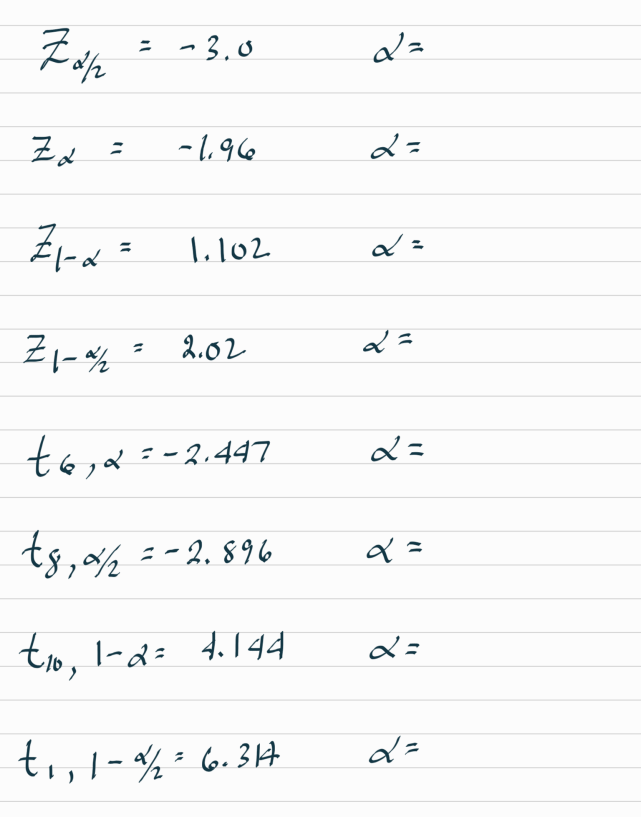 Z_{α/2} = -3.0 α=
Z_α = -1.96 α=
Z_{1-α} = 1.102 α=
Z_{1-α/2} = 2.02 α=
t_{6,α} = -2.447 α=
t_{8,α/2} = -2.896 α=
t_{10, 1-α} = 4.144 α=
t_{1, 1-α/2} = 6.314 α=